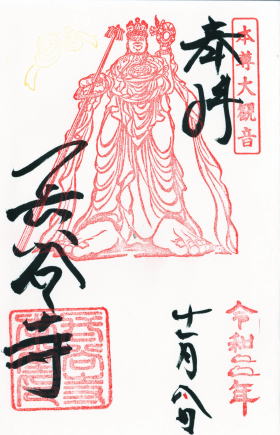 本尊大觀音
奉拝
令和二年
十一月八日
長谷寺